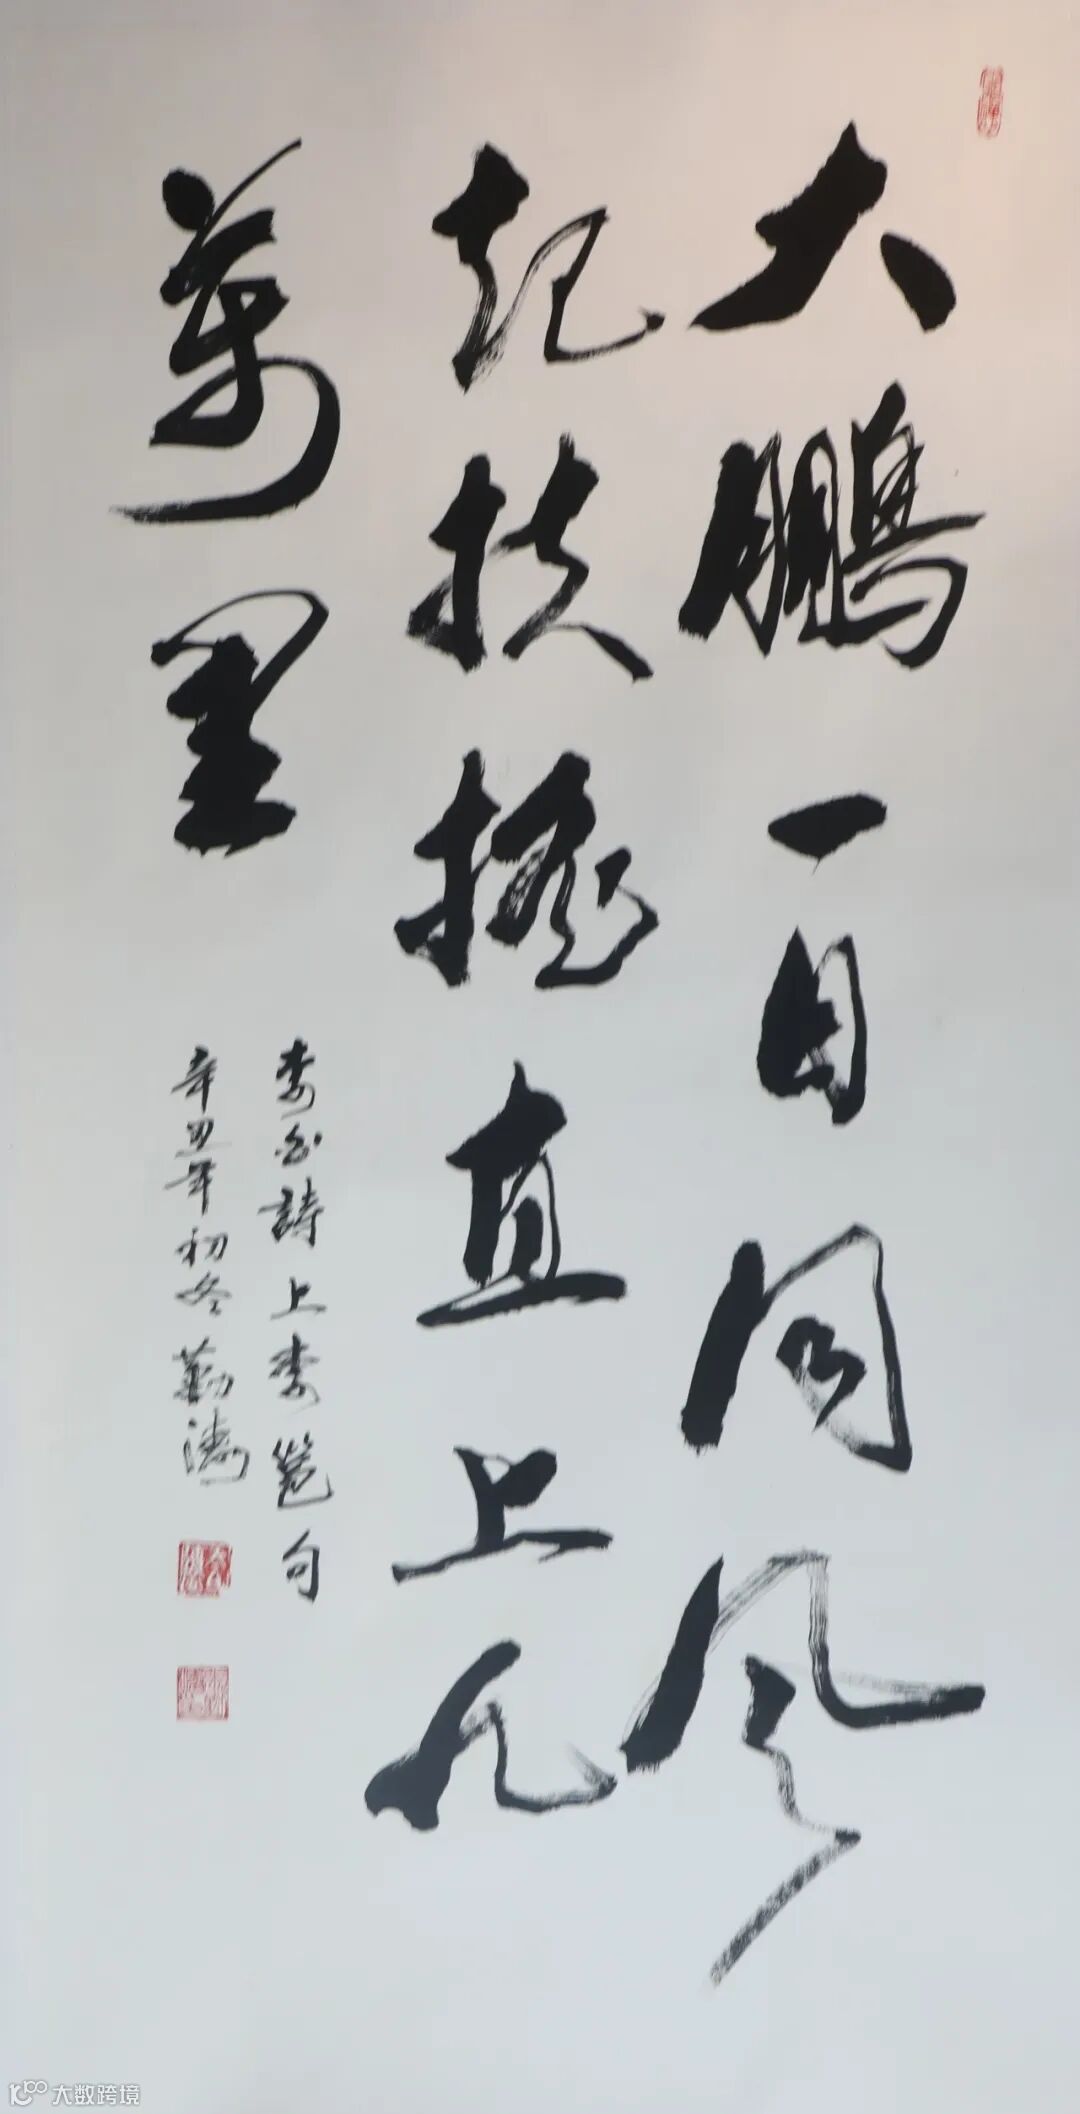 大鹏一日同风
起扶摇直上九
萬里
李白詩上李邕句
辛丑年初冬勤涛
大数跨境